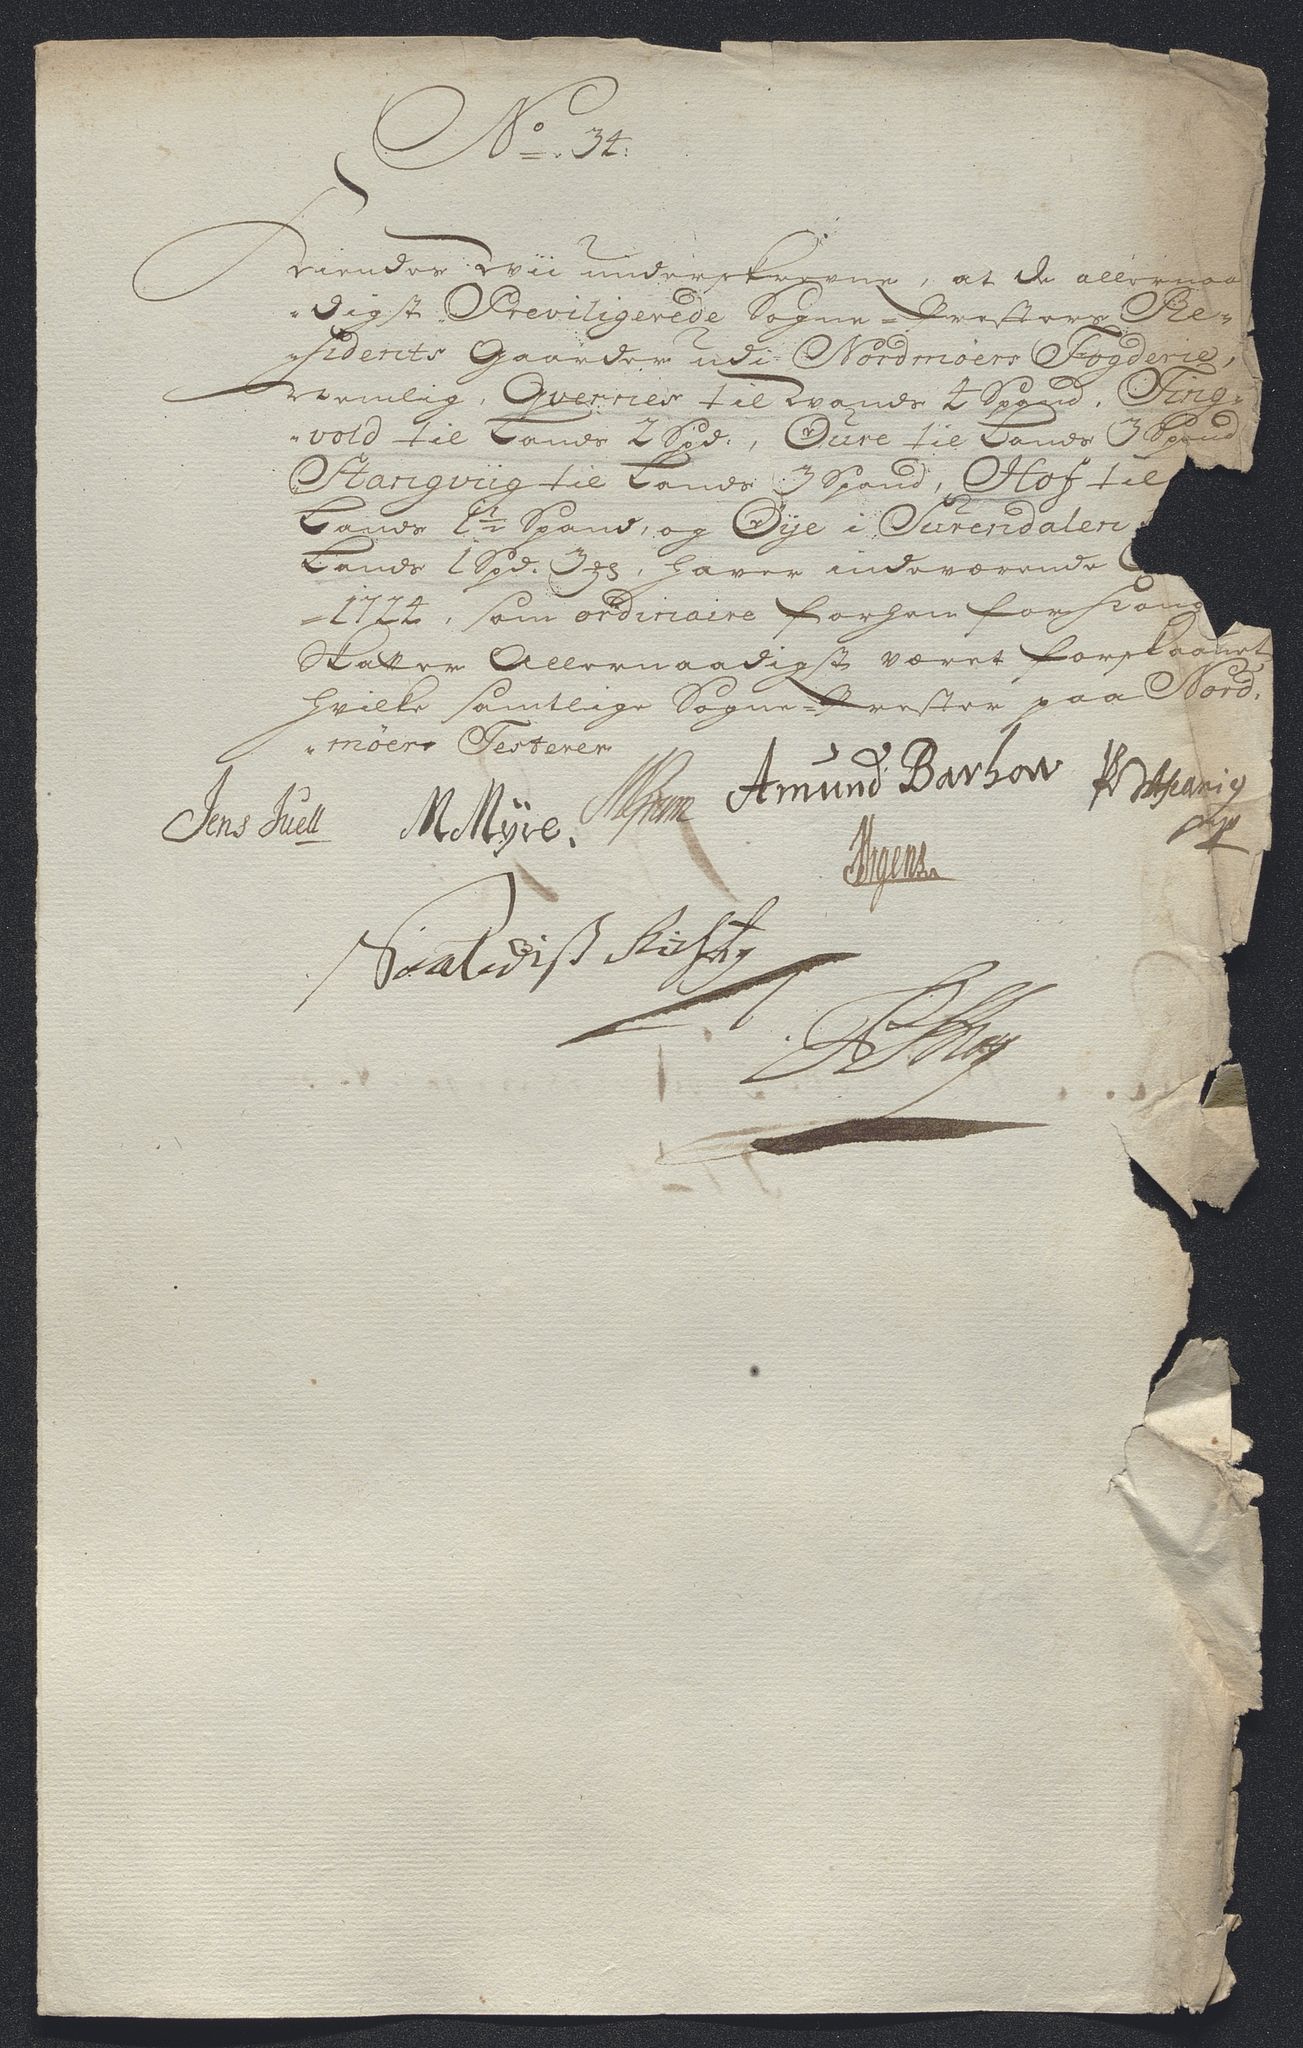 No. 34.
Kiendes Wii underskrevne, at de allernaa
"digst Previligerede Sogne-Presters Re-
"sidents Gaarder udi Nordmøers Fogderie,
Nemlig, Qvernes til Lands 4 Spand, Ting-
"vold til Lands 2 Spd:, Øure til Lands 3 Spand
Stangviig til Lands 3 Spand, Hof til
Lands 1½ Spand, og Øye i Surendalen
Lands 1 Spd. 3, haver indeværende
1724, som ordinaire forhen for Kong
Skatter Allernaadigst været forskaanet,
hvilke samtlige Sogne-Prester paa Nord-
"møer Testerer
Jens Juell M Myre. Amund Barhow